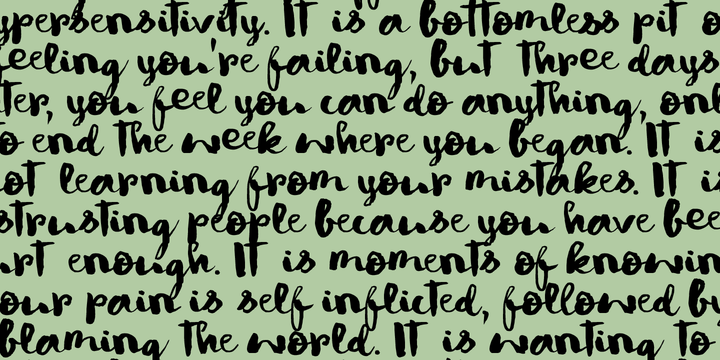 ypersensitivity. It is a bottomless pit o
feeling you're failing, but three days
ter, you feel you can do anything, onl
o end the week where you began. It is
ot learning from your mistakes. It is
strusting people because you have bee
urt enough. It is moments of knowin
our pain is self inflicted, followed by
blaming the world. It is wanting to